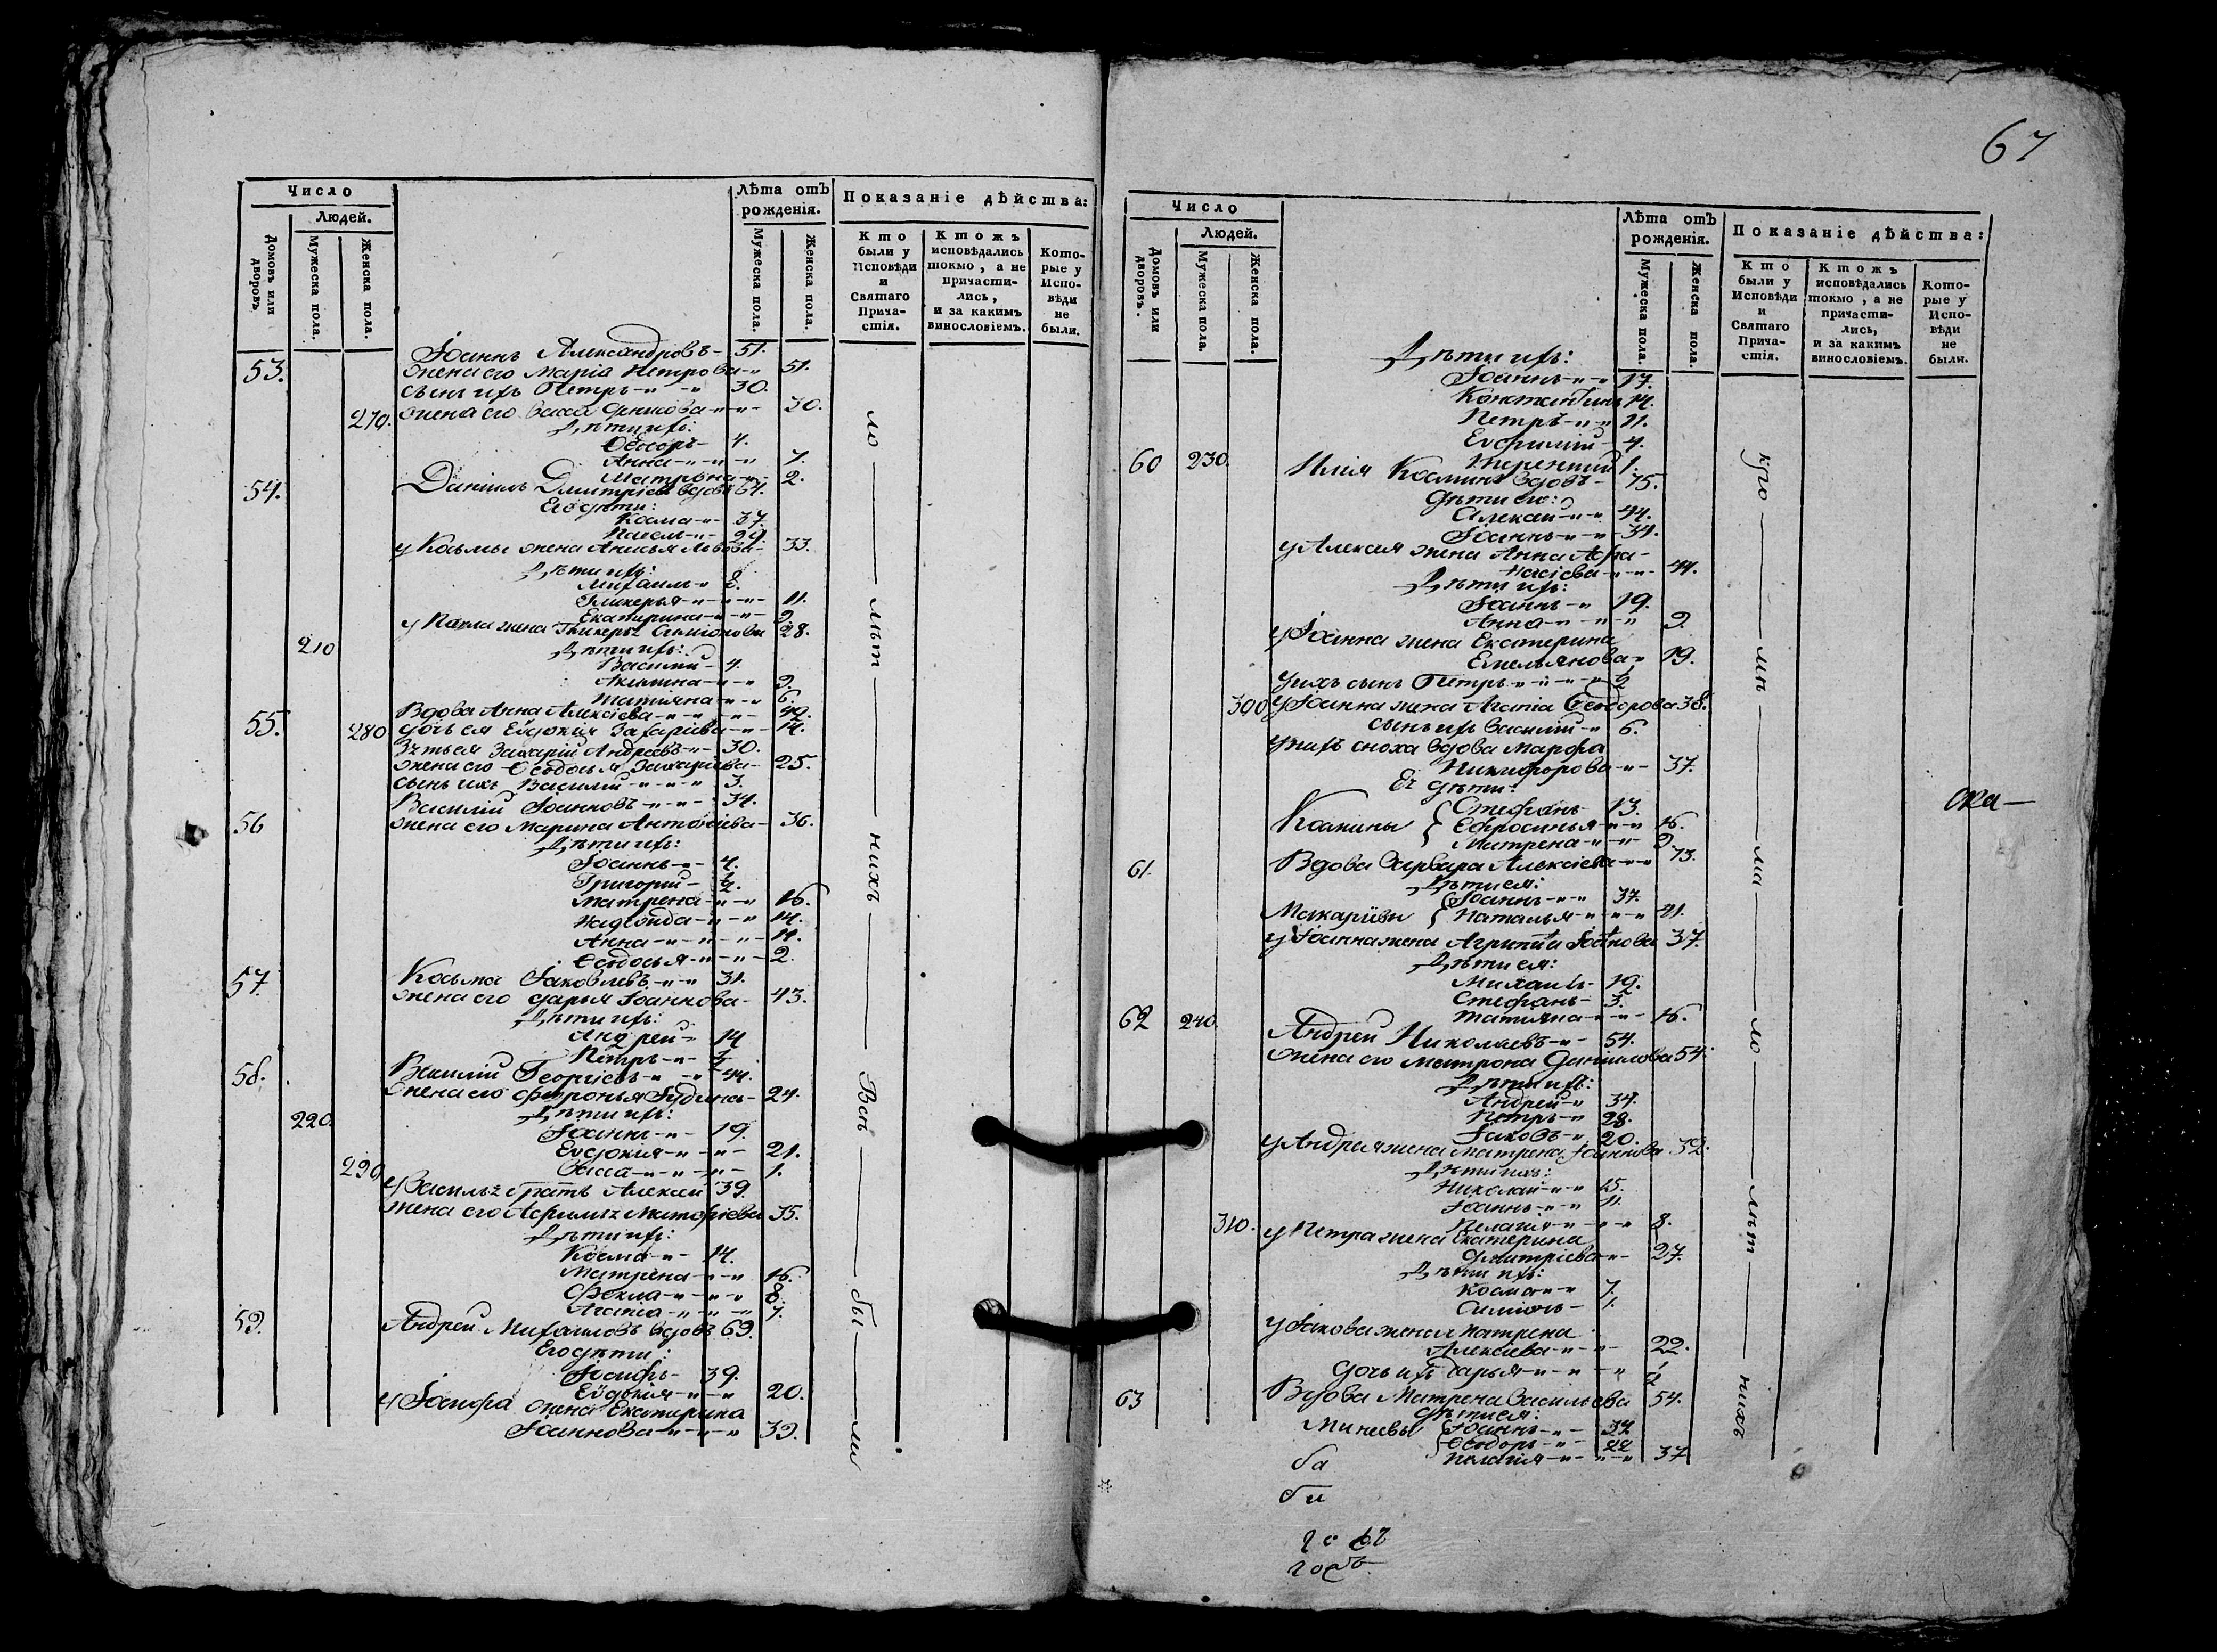 Число
Людей.
Домовъ или дворовъ.
Мужеска пола.
Женска пола.
Лѣта отъ рожденія.
Мужеска пола.
Женска пола.
Показаніе дѣйства:
Кто были у Исповѣди и Святаго Причастія.
Ктожъ исповѣдались токмо, а не причастились, и за какимъ винословіемъ.
Которые у Исповѣди не были.
53. Іоаннъ Александровъ 51.
жена его Марія Петрова 51.
сынъ ихъ Петръ 30.
270. жена его Васса 30.
Дѣти ихъ:
Ѳеодоръ 4.
Анна 7.
Матрона 2.
54. Даніилъ Дмитріевъ вдовъ
Его дѣти:
Косма 37.
Павелъ 29.
у Космы жена Анисья 33.
Дѣти ихъ:
Михаилъ 8.
Гликерья 11.
Екатерина 9.
у Павла жена Гликерья Симіонова 28.
210
Дѣти ихъ:
Василій 4.
Акилина 9.
Татіяна 6.
55. Вдова Анна Алексіева
280 дочь ея Евдокия Захаріева 14.
Зять ея Захарій Андреевъ 30.
жена его Ѳеодосья Захаріева 25.
сынъ ихъ Василій 3.
56 Василій Іоанновъ 34.
жена его Марина Антоніева 36.
Дѣти ихъ:
Іоаннъ 4.
Григорій ½.
Матрена 16.
Надежда 14.
Анна 11.
Ѳеодосья 2.
57. Косьма Іаковлевъ 31.
жена его Дарья Іоаннова 43.
Дѣти ихъ:
Андрей 14
Петръ ½
58. Василій Георгіевъ 44.
жена его 24.
220.
Дѣти ихъ:
Іоаннъ 19.
Евдокия 21.
290 Васса 1.
у Василья братъ Алексій 39.
жена его 35.
Дѣти ихъ:
Косма 14.
Матрена 16.
Ѳекла 8.
Агапіа 7.
59. Андрей Михаиловъ вдовъ 69.
Его дѣти:
Іосифъ 39.
Евдокия 20.
у Іосифа жена Екатерина
Іоаннова 39.
Всѣ — бы — ли
ло — лѣт — нихъ
67
Число
Людей.
Домовъ или дворовъ.
Мужеска пола.
Женска пола.
Лѣта отъ рожденія.
Мужеска пола.
Женска пола.
Показаніе дѣйства:
Кто были у Исповѣди и Святаго Причастія.
Ктожъ исповѣдались токмо, а не причастились, и за какимъ винословіемъ.
Которые у Исповѣди не были.
Дѣти ихъ:
Іоаннъ 17.
Константинъ 14.
Петръ 11.
Евфимій 4.
60 230. Терентій 1.
Илія Косминъ вдовъ 75.
Дѣти его:
Алексій 44.
Іоаннъ 34.
у Алексія жена Анна Афа-
насіева 44.
Дѣти ихъ:
Іоаннъ 19.
Анна 9.
у Іоанна жена Екатерина
Емельянова 19.
у нихъ сынъ Петръ ½
300 у Іоанна жена Агапіа Ѳеодорова 38.
сынъ ихъ Василій 6.
у нихъ сноха вдова Марфа
Никифорова 37.
Ея дѣти:
Стефанъ 13.
Козмины { Ефросинья 16.
Матрена 9.
61. Вдова Варвара Алексіева 73.
Дѣти ея:
Іоаннъ 37.
Макаріевы { Наталья 41.
у Іоанна жена Агрипина Іоаннова 37.
Дѣти ея:
Михаилъ 19.
Стефанъ 3.
Татіяна 16.
62 240. Андрей Николаевъ 54.
жена его Матрона Даниилова 54.
Дѣти ихъ:
Андрей 34.
Петръ 28.
Іаковъ 20.
у Андрея жена Матрена Іоаннова 32.
Дѣти ихъ:
Николай 15.
Іоаннъ 11.
310. Пелагія 8.
у Петра жена Екатерина
Дмитріева 27.
Дѣти ихъ:
Косма 7.
Симіонъ 1.
у Іакова жена Матрена
Алексіева 22.
дочь ихъ Дарья ½
63 Вдова Матрена Васильева 54.
дѣти ея:
Минеевы { Іоаннъ 34
Ѳеодоръ 22
Пелагія 37
мѣ — ма — ло — лѣт — нихъ
ска—
ба
би
годъ